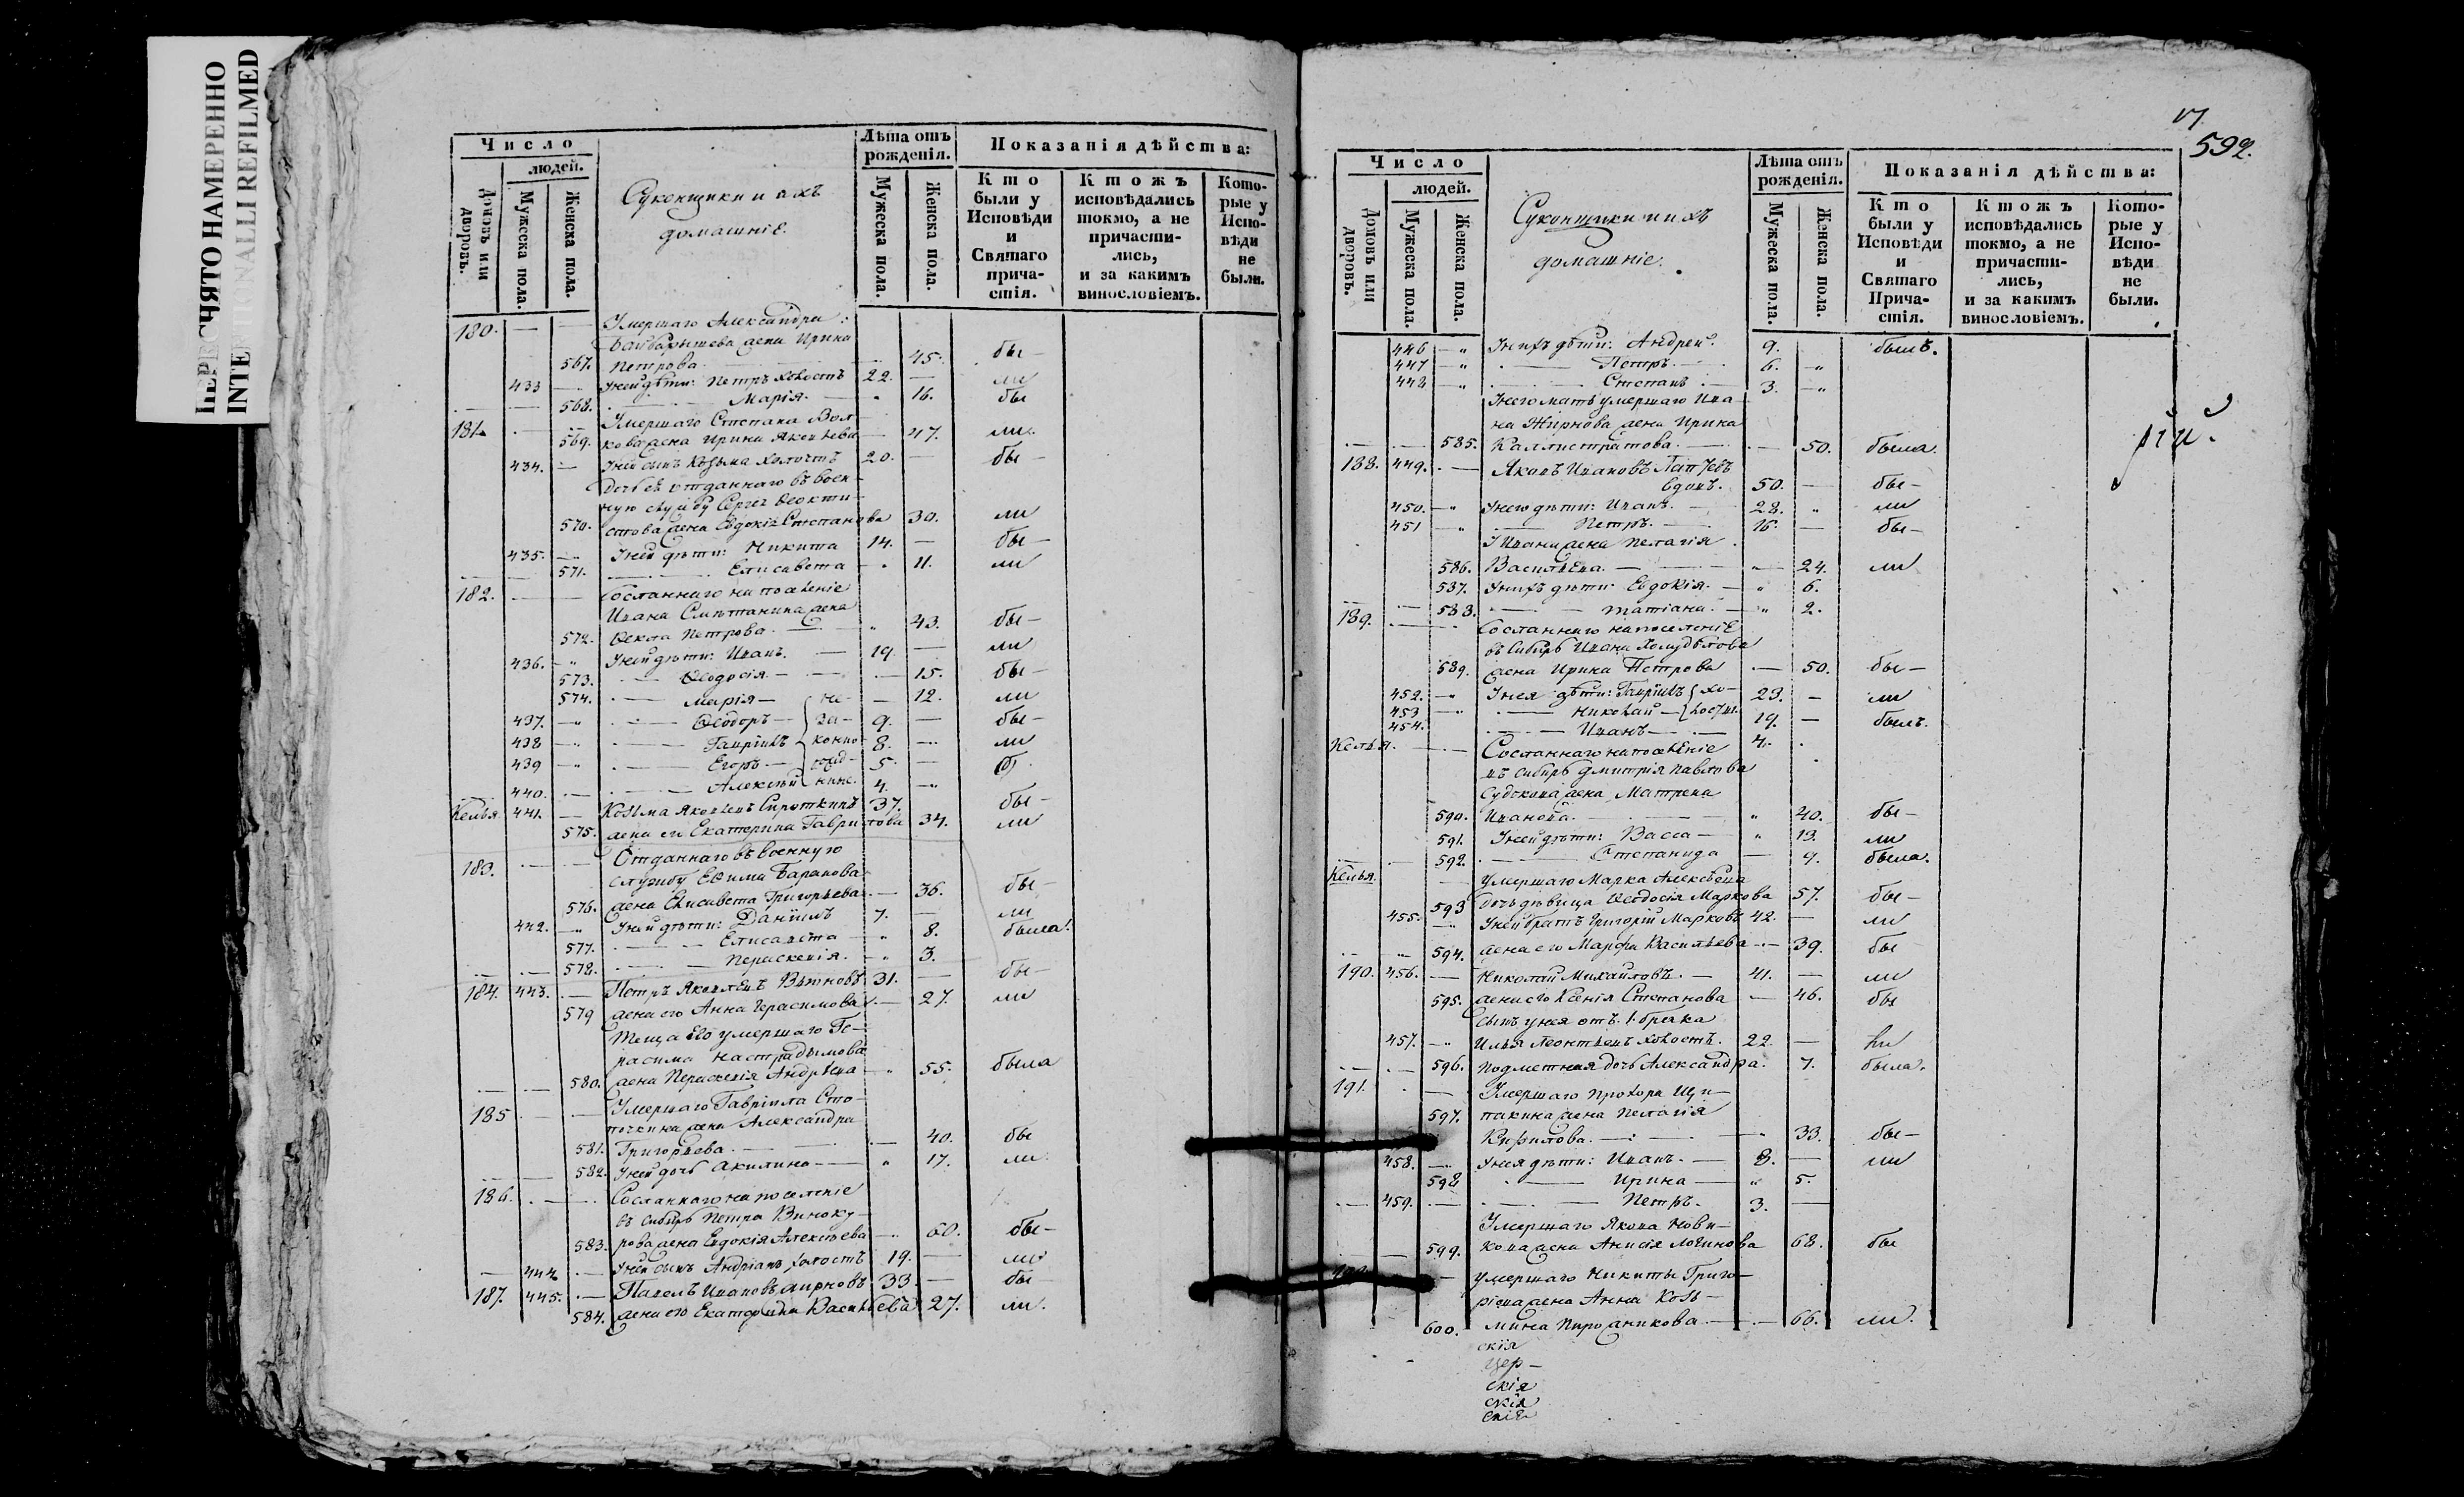 ПЕРЕСНЯТО НАМЕРЕННО
INTENTIONALLI REFILMED
Число
людей.
Домовъ или дворовъ.
Мужеска пола.
Женска пола.
Суконщики и ихъ
домашніе.
Лѣта отъ рожденія.
Мужеска пола.
Женска пола.
Показанія дѣйства:
Кто были у Исповѣди и Святаго причастія.
Ктожъ исповѣдались токмо, а не причастились, и за какимъ винословіемъ.
Которые у Исповѣди не были.
180. Умершаго Александра
жена Ирина
567. Петрова. 45. бы-
433 У ней дѣти: Петръ холостъ 22. ли
568. Марія. 16. бы
181. Умершаго Степана Вол-
569. кова жена Ирина Яковлева 47. ли.
434. У ней сынъ Козьма холостъ 20. бы-
Дочь ея отданнаго въ воен-
ную службу Сергея Ѳеокти-
570. стова жена Евдокія Степанова 30. ли
435. У ней дѣти: Никита 14. бы-
571. Елисавета 11. ли
182. Сосланнаго на поселеніе
Ивана Сметанина жена
572. Ѳекла Петрова. 43. бы-
436. У ней дѣти: Иванъ. 19. ли
573. Ѳеодосія. 15. бы-
574. Марія 12. ли
437. Ѳеодоръ 9. бы-
438 Гавріилъ 8. ли
439 Егоръ 5.
440. Алексѣй 4.
Келья. 441. Козьма Яковлевъ Сироткинъ 37. бы-
575. жена его Екатерина Гаврилова 34. ли
183. Отданнаго въ военную
службу Евѳима Баранова
576. жена Елисавета Григорьева 36. бы-
442. У ней дѣти: Даніилъ 7. ли
577. Елисавета 8. была.
578. Параскевія. 3.
184. 443. Петръ Яковлевъ 31. бы-
579 жена его Анна Герасимова 27. ли
Теща его умершаго Ге-
расима
580. жена Параскевія Андреева 55. была
185 Умершаго Гавріила Сто-
почкина жена Александра
581. Григорьева. 40. бы
582. У ней дочь Акилина 17. ли
186. Сосланнаго на поселеніе
въ Сибирь Петра Виноку-
583. рова жена Евдокія Алексѣева 60. бы-
444 У ней сынъ Андріанъ холостъ 19. ли
187. 445. Павелъ Ивановъ Жирновъ 33. бы-
584. жена его Екатерина Васильева 27. ли.
592.
Число
людей.
Домовъ или дворовъ.
Мужеска пола.
Женска пола.
Суконщики и ихъ
домашніе.
Лѣта отъ рожденія.
Мужеска пола.
Женска пола.
Показанія дѣйства:
Кто были у Исповѣди и Святаго Причастія.
Ктожъ исповѣдались токмо, а не причастились, и за какимъ винословіемъ.
Которые у Исповѣди не были.
446 У нихъ дѣти: Андрей. 9. былъ.
447 Петръ. 6.
448 Степанъ 3.
У него мать умершаго Ива-
на Жирнова жена Ирина
585. Каллистратова. 50. была.
188. 449. Яковъ Ивановъ Лаптевъ
вдовъ. 50. бы-
450. У него дѣти: Иванъ. 28. ли
451 Петръ. 16. бы-
У Ивана жена Пелагія
586. Васильева. 24. ли
587. У нихъ дѣти Евдокія. 6.
588. Татіана. 2.
189. Сосланнаго на поселеніе
въ Сибирь Ивана
589. жена Ирина Петрова 50. бы-
452. У нея дѣти: Гавріилъ хо- 23. ли
453 Николай лосты. 19. былъ.
454. Иванъ 4.
Келья. Сосланнаго на поселеніе
въ Сибирь Дмитрія Павлова
жена Матрена
590. Иванова. 40. бы-
591. У ней дѣти: Васса 13. ли
592. Степанида 9. была.
Келья. Умершаго Марка Алексѣева
593 дочь дѣвица Ѳеодосія Маркова 57. бы-
455. У ней братъ Григорій Марковъ 42. ли
594. жена его Марфа Васильева 39. бы
190. 456. Николай Михайловъ. 41. ли
595. жена его Ксенія Степанова 46. бы
сынъ у нея отъ 1. брака
457. Илья Леонтьевъ холостъ. 22. ли
596. Подметная дочь Александра. 7. была.
191. Умершаго Прохора Щи-
597. пакина жена Пелагія
Кирилова. 33. бы-
458. У нея дѣти: Иванъ. 8. ли
598 Ирина 5.
459. Петръ. 3.
Умершаго Якова Нови-
599. кова жена Анисія Логинова 68. бы
Умершаго Никиты Григо-
рьева жена Анна Козь-
600. мина Пирожникова 66. ли.
скія
цер-
скія
скія
скія